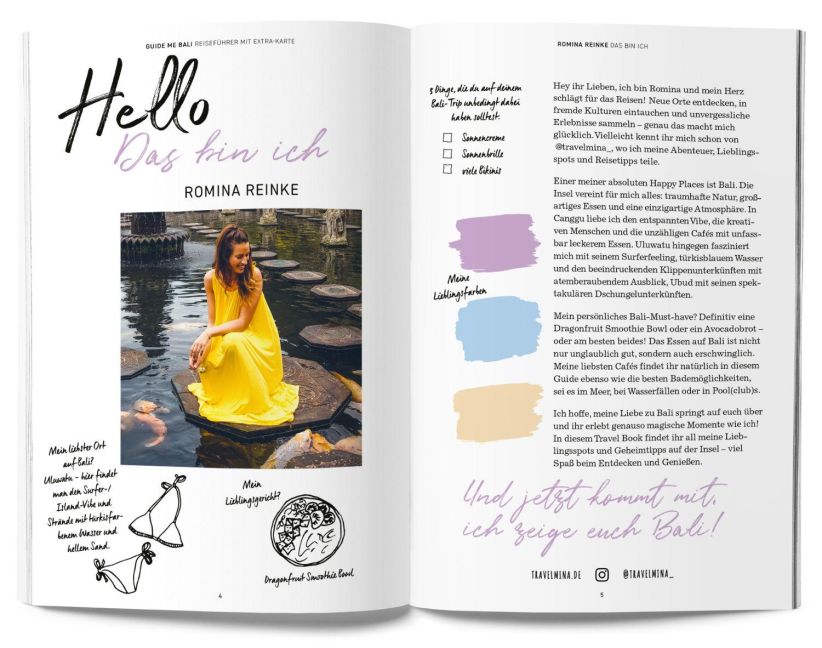 GUIDE ME BALI REISEFÜHRER MIT EXTRA-KARTE
Hello
Das bin ich
ROMINA REINKE
Mein liebster Ort
auf Bali?
Uluwatu – hier findet
man den Surfer-/
Island-Vibe und
Strände mit türkisfar-
benem Wasser und
hellem Sand.
Mein
Lieblingsgericht?
Dragonfruit Smoothie Bowl
4
ROMINA REINKE DAS BIN ICH
3 Dinge, die du auf deinem
Bali-Trip unbedingt dabei
haben solltest:
Sonnencreme
Sonnenbrille
viele Bikinis
Meine
Lieblingsfarben
Hey ihr Lieben, ich bin Romina und mein Herz
schlägt für das Reisen! Neue Orte entdecken, in
fremde Kulturen eintauchen und unvergessliche
Erlebnisse sammeln – genau das macht mich
glücklich. Vielleicht kennt ihr mich schon von
@travelmina_, wo ich meine Abenteuer, Lieblings-
spots und Reisetipps teile.
Einer meiner absoluten Happy Places ist Bali. Die
Insel vereint für mich alles: traumhafte Natur, groß-
artiges Essen und eine einzigartige Atmosphäre. In
Canggu liebe ich den entspannten Vibe, die kreati-
ven Menschen und die unzähligen Cafés mit unfass-
bar leckerem Essen. Uluwatu hingegen fasziniert
mich mit seinem Surferfeeling, türkisblauem Wasser
und den beeindruckenden Klippenunterkünften mit
atemberaubendem Ausblick, Ubud mit seinen spek-
takulären Dschungelunterkünften.
Mein persönliches Bali-Must-have? Definitiv eine
Dragonfruit Smoothie Bowl oder ein Avocadobrot –
oder am besten beides! Das Essen auf Bali ist nicht
nur unglaublich gut, sondern auch erschwinglich.
Meine liebsten Cafés findet ihr natürlich in diesem
Guide ebenso wie die besten Bademöglichkeiten,
sei es im Meer, bei Wasserfällen oder in Pool(club)s.
Ich hoffe, meine Liebe zu Bali springt auf euch über
und ihr erlebt genauso magische Momente wie ich!
In diesem Travel Book findet ihr all meine Lieb-
lingsspots und Geheimtipps auf der Insel – viel
Spaß beim Entdecken und Genießen.
Und jetzt kommt mit,
ich zeige euch Bali!
TRAVELMINA.DE @TRAVELMINA_
5